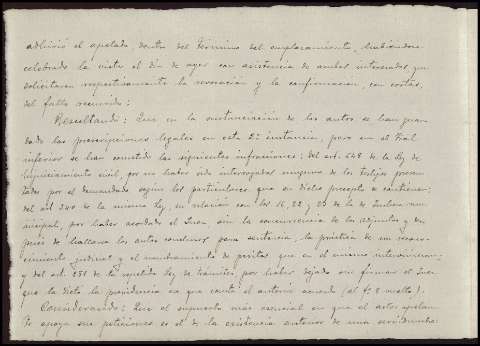 adhirió el apelado, dentro del término del emplazamiento, habiéndose
celebrado la vista el día de ayer con asistencia de ambos interesados, que
solicitaron respectivamente la revocación y la confirmación, con costas,
del fallo recurrido:
Resultando: Que en la sustanciación de los autos se han guar-
dado las prescripciones legales en esta 2ª instancia, pero en el Tral
inferior se han cometido las siguientes infracciones: del art. 648 de la Ley de
Enjuiciamiento civil, por no haber sido interrogados ninguno de los testigos presen-
tados por el demandado según los particulares que en dicho precepto se contienen;
del art. 340 de la misma Ley, en relación con los 16, 22 y 23 de la de Justicia mu-
nicipal, por haber acordado el Juez, sin la concurrencia de los adjuntos y des-
pués de hallarse los autos conclusos para sentencia, la práctica de un recono-
cimiento judicial y el nombramiento de peritos que en el mismo intervinieran;
y del art. 251 de la repetida Ley de trámites por haber dejado sin firmar el Juez
que la dictó la providencia en que constó el anterior acuerdo (al fº 2 vuelto).
Considerando: Que el supuesto más esencial en que el actor apelan-
te apoya sus peticiones es el de la existencia anterior de una servidumbre